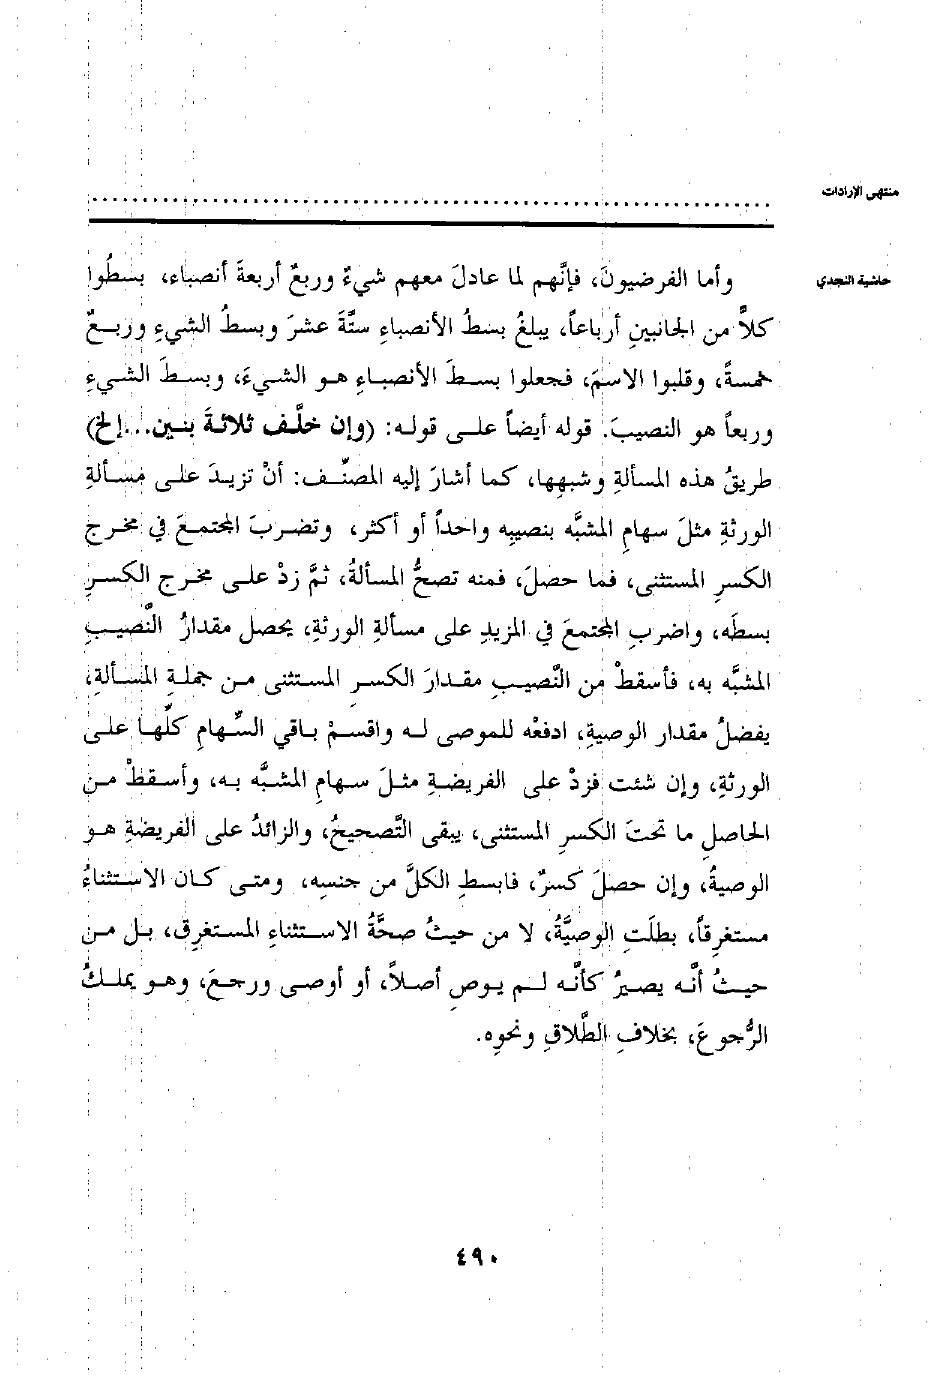 منتهى الإرادات
حاشية النجدي
وأما الفرضيونَ، فإنَّهم لما عادلَ معهم شيءٌ وربعٌ أربعةَ أنصباء، بسطُوا
كلاًّ من الجانبينِ أرباعاً، يبلغُ بسطُ الأنصباءِ ستَّةَ عشرَ وبسطُ الشيءِ وربعٌ
خمسةً، وقلبوا الاسمَ، فجعلوا بسطَ الأنصباءِ هو الشيءَ، وبسطَ الشيءِ
وربعاً هو النصيبَ. قوله أيضاً على قوله: (وإن خلَّف ثلاثةَ بنين...إلخ)
طريقُ هذه المسألةِ وشبهِها، كما أشارَ إليه المصنِّف: أنْ تزيدَ على مسألةِ
الورثةِ مثلَ سهامِ المشبَّه بنصيبِه واحداً أو أكثر، وتضربَ المجتمعَ في مخرجِ
الكسرِ المستثنى، فما حصلَ، فمنه تصحُّ المسألةُ، ثمَّ زدْ على مخرجِ الكسرِ
بسطَه، واضربِ المجتمعَ في المزيدِ على مسألةِ الورثةِ، يحصل مقدارُ النَّصيبِ
المشبَّه به، فأسقطْ من النَّصيبِ مقدارَ الكسرِ المستثنى من جملةِ المسألةِ،
يفضلُ مقدار الوصيةِ، ادفعْه للموصى له واقسمْ باقي السِّهامِ كلِّها على
الورثةِ، وإن شئت فزدْ على الفريضةِ مثلَ سهامِ المشبَّه به، وأسقطْ من
الحاصلِ ما تحتَ الكسرِ المستثنى، يبقى التَّصحيحُ، والزائدُ على الفريضةِ هو
الوصيةُ، وإن حصلَ كسرٌ، فابسطِ الكلَّ من جنسِه، ومتى كان الاستثناءُ
مستغرقاً، بطلَتِ الوصيَّةُ، لا من حيثُ صحَّةُ الاستثناءِ المستغرِق، بل من
حيثُ أنَّه يصيرُ كأنَّه لم يوصِ أصلاً، أو أوصى ورجعَ، وهو يملكُ
الرُّجوعَ، بخلافِ الطَّلاقِ ونحوِه.
٤٩٠